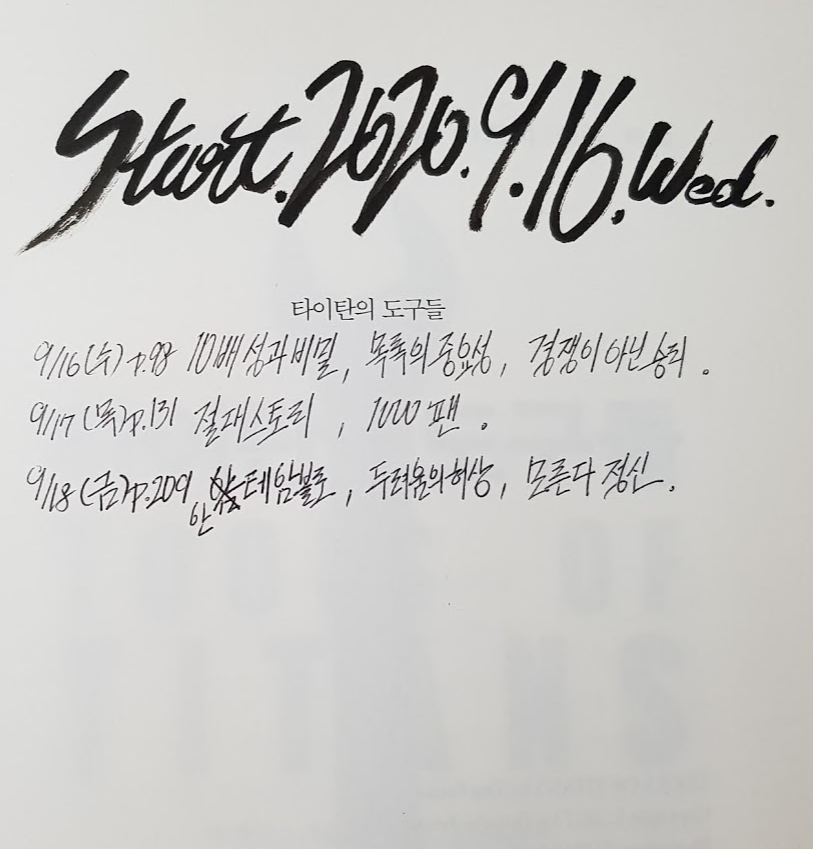 Start. 2020. 9. 16. Wed.
타이탄의 도구들
9/16 (수) p.98 10배 성과 비밀, 목록의 중요성, 경쟁이 아닌 승리.
9/17 (목) p.131 절대스토리, 1000 팬.
9/18 (금) p.209 안테암블로, 두려움의 허상, 모른다 정신.
TOOLS OF
TITANS